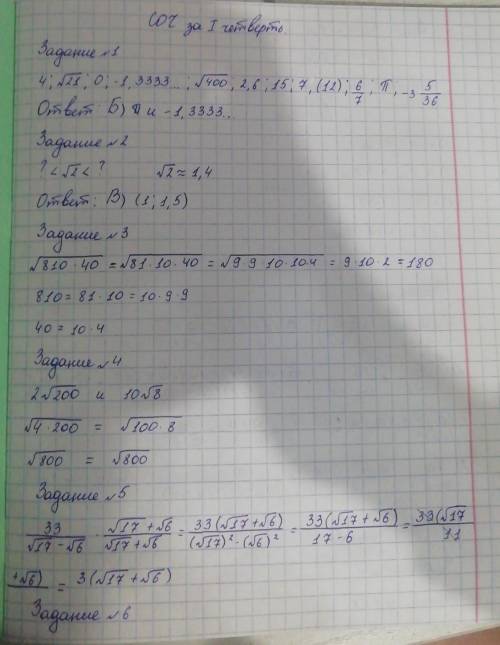 СОЧ за I четверть
Задание №1
4; √21, 0, -1,3333...; √400, 2,6; 15; 7,(12); 6/7; π, -3 5/36
Ответ Б) π и -1,3333..
Задание №2
? < √2 < ? √2 ≈ 1,4
Ответ: В) (1; 1,5)
Задание №3
√810·40 = √81·10·40 = √9·9·10·10·4 = 9·10·2 = 180
810 = 81·10 = 10·9·9
40 = 10·4
Задание №4
2√200 и 10√8
√4·200 = √100·8
√800 = √800
Задание №5
33/(√17-√6) · (√17+√6)/(√17+√6) = 33(√17+√6)/((√17)²-(√6)²) = 33(√17+√6)/(17-6) = 33(√17/11
+√6) = 3(√17+√6)
Задание №6